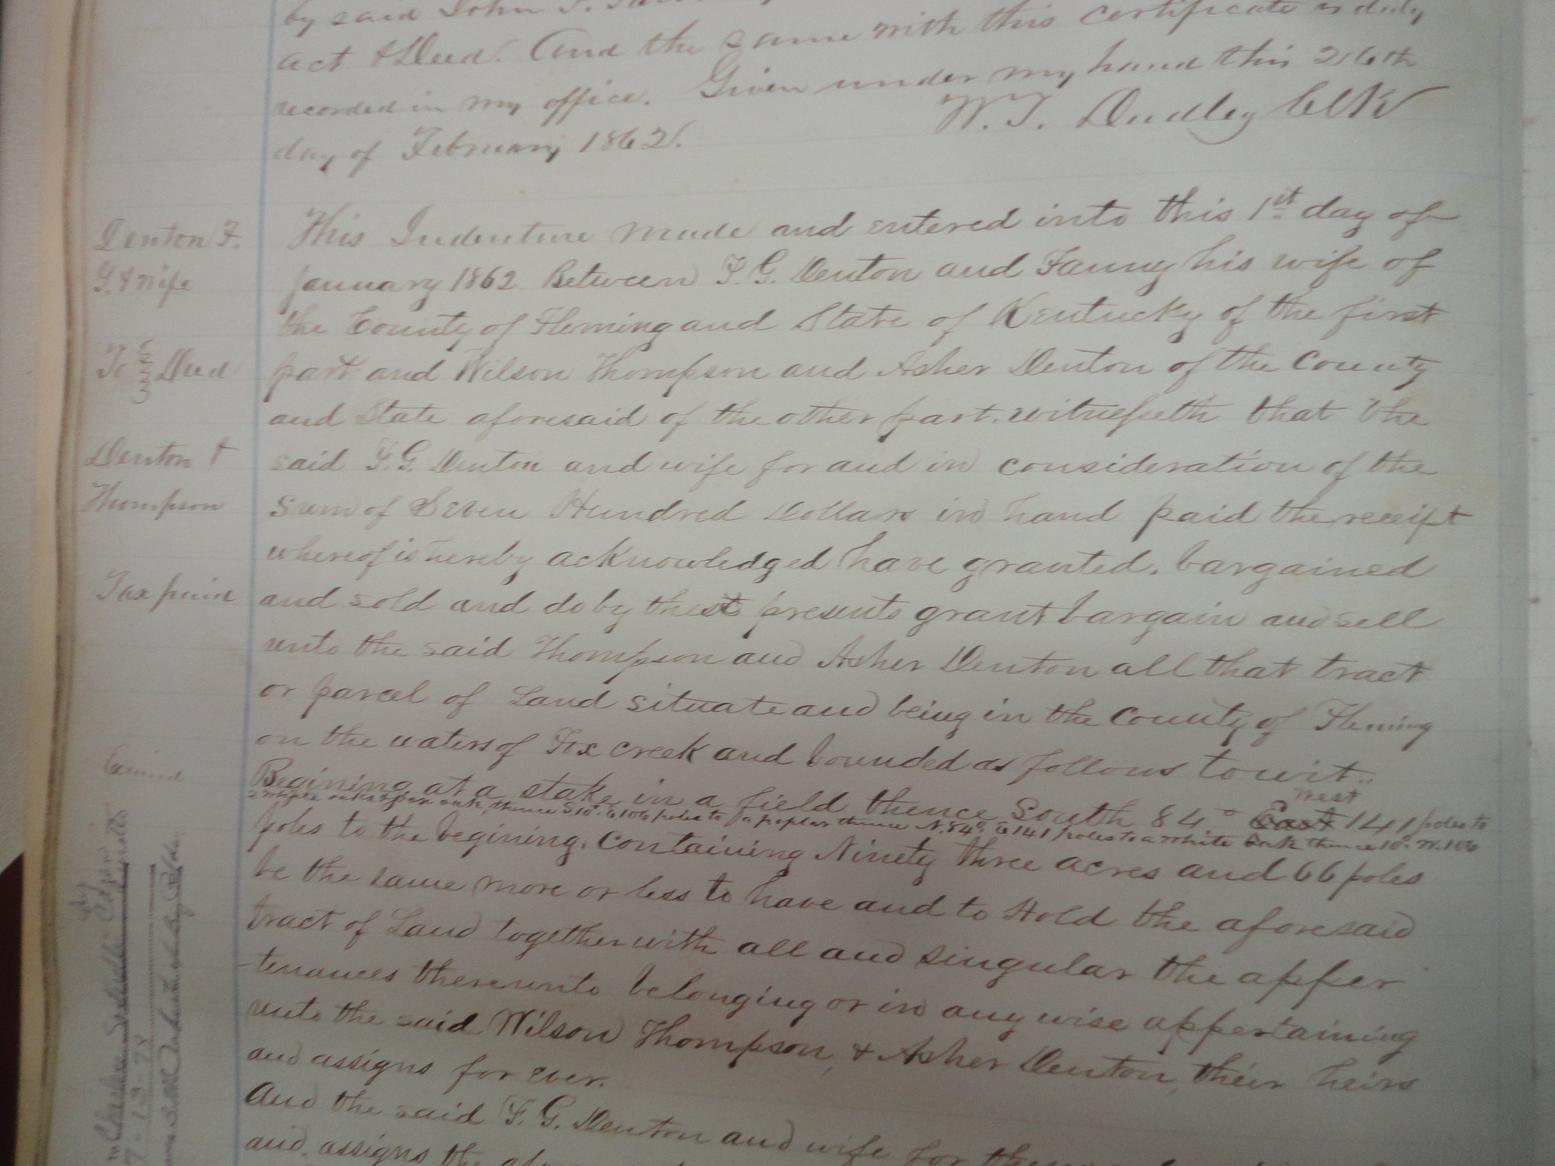 by said John F.
act & Deed. And the same with this certificate is duly
recorded in my office. Given under my hand this 26th
day of February 1862.
W. T. Dudley Clk
Denton F.
G. & wife
To Deed
Denton &
Thompson
Tax paid
This Indenture made and entered into this 1st day of
January 1862 Between F. G. Denton and Fanny his wife of
the County of Fleming and State of Kentucky of the first
part and Wilson Thompson and Asher Denton of the County
and State aforesaid of the other part. witnesseth that the
said F. G. Denton and wife for and in consideration of the
sum of Seven Hundred Dollars in hand paid the receipt
whereof is hereby acknowledged have granted. bargained
and sold and do by these presents grant bargain and sell
unto the said Thompson and Asher Denton all that tract
or parcel of Land situate and being in the County of Fleming
on the waters of Fox creek and bounded as follows towit..
West
Begining at a stake in a field thence South 84° East 141 poles to
thence S 10° E 106 poles to a poplar thence N. 84° E 141 poles to a white oak thence 10° W. 106
poles to the begining. Containing Ninety three acres and 66 poles
be the same more or less to have and to Hold the aforesaid
tract of Land together with all and singular the apper
tenances thereunto belonging or in any wise appertaining
unto the said Wilson Thompson, & Asher Denton, their heirs
and assigns for ever.
And the said F. G. Denton and wife for
and assigns the
7-13-78